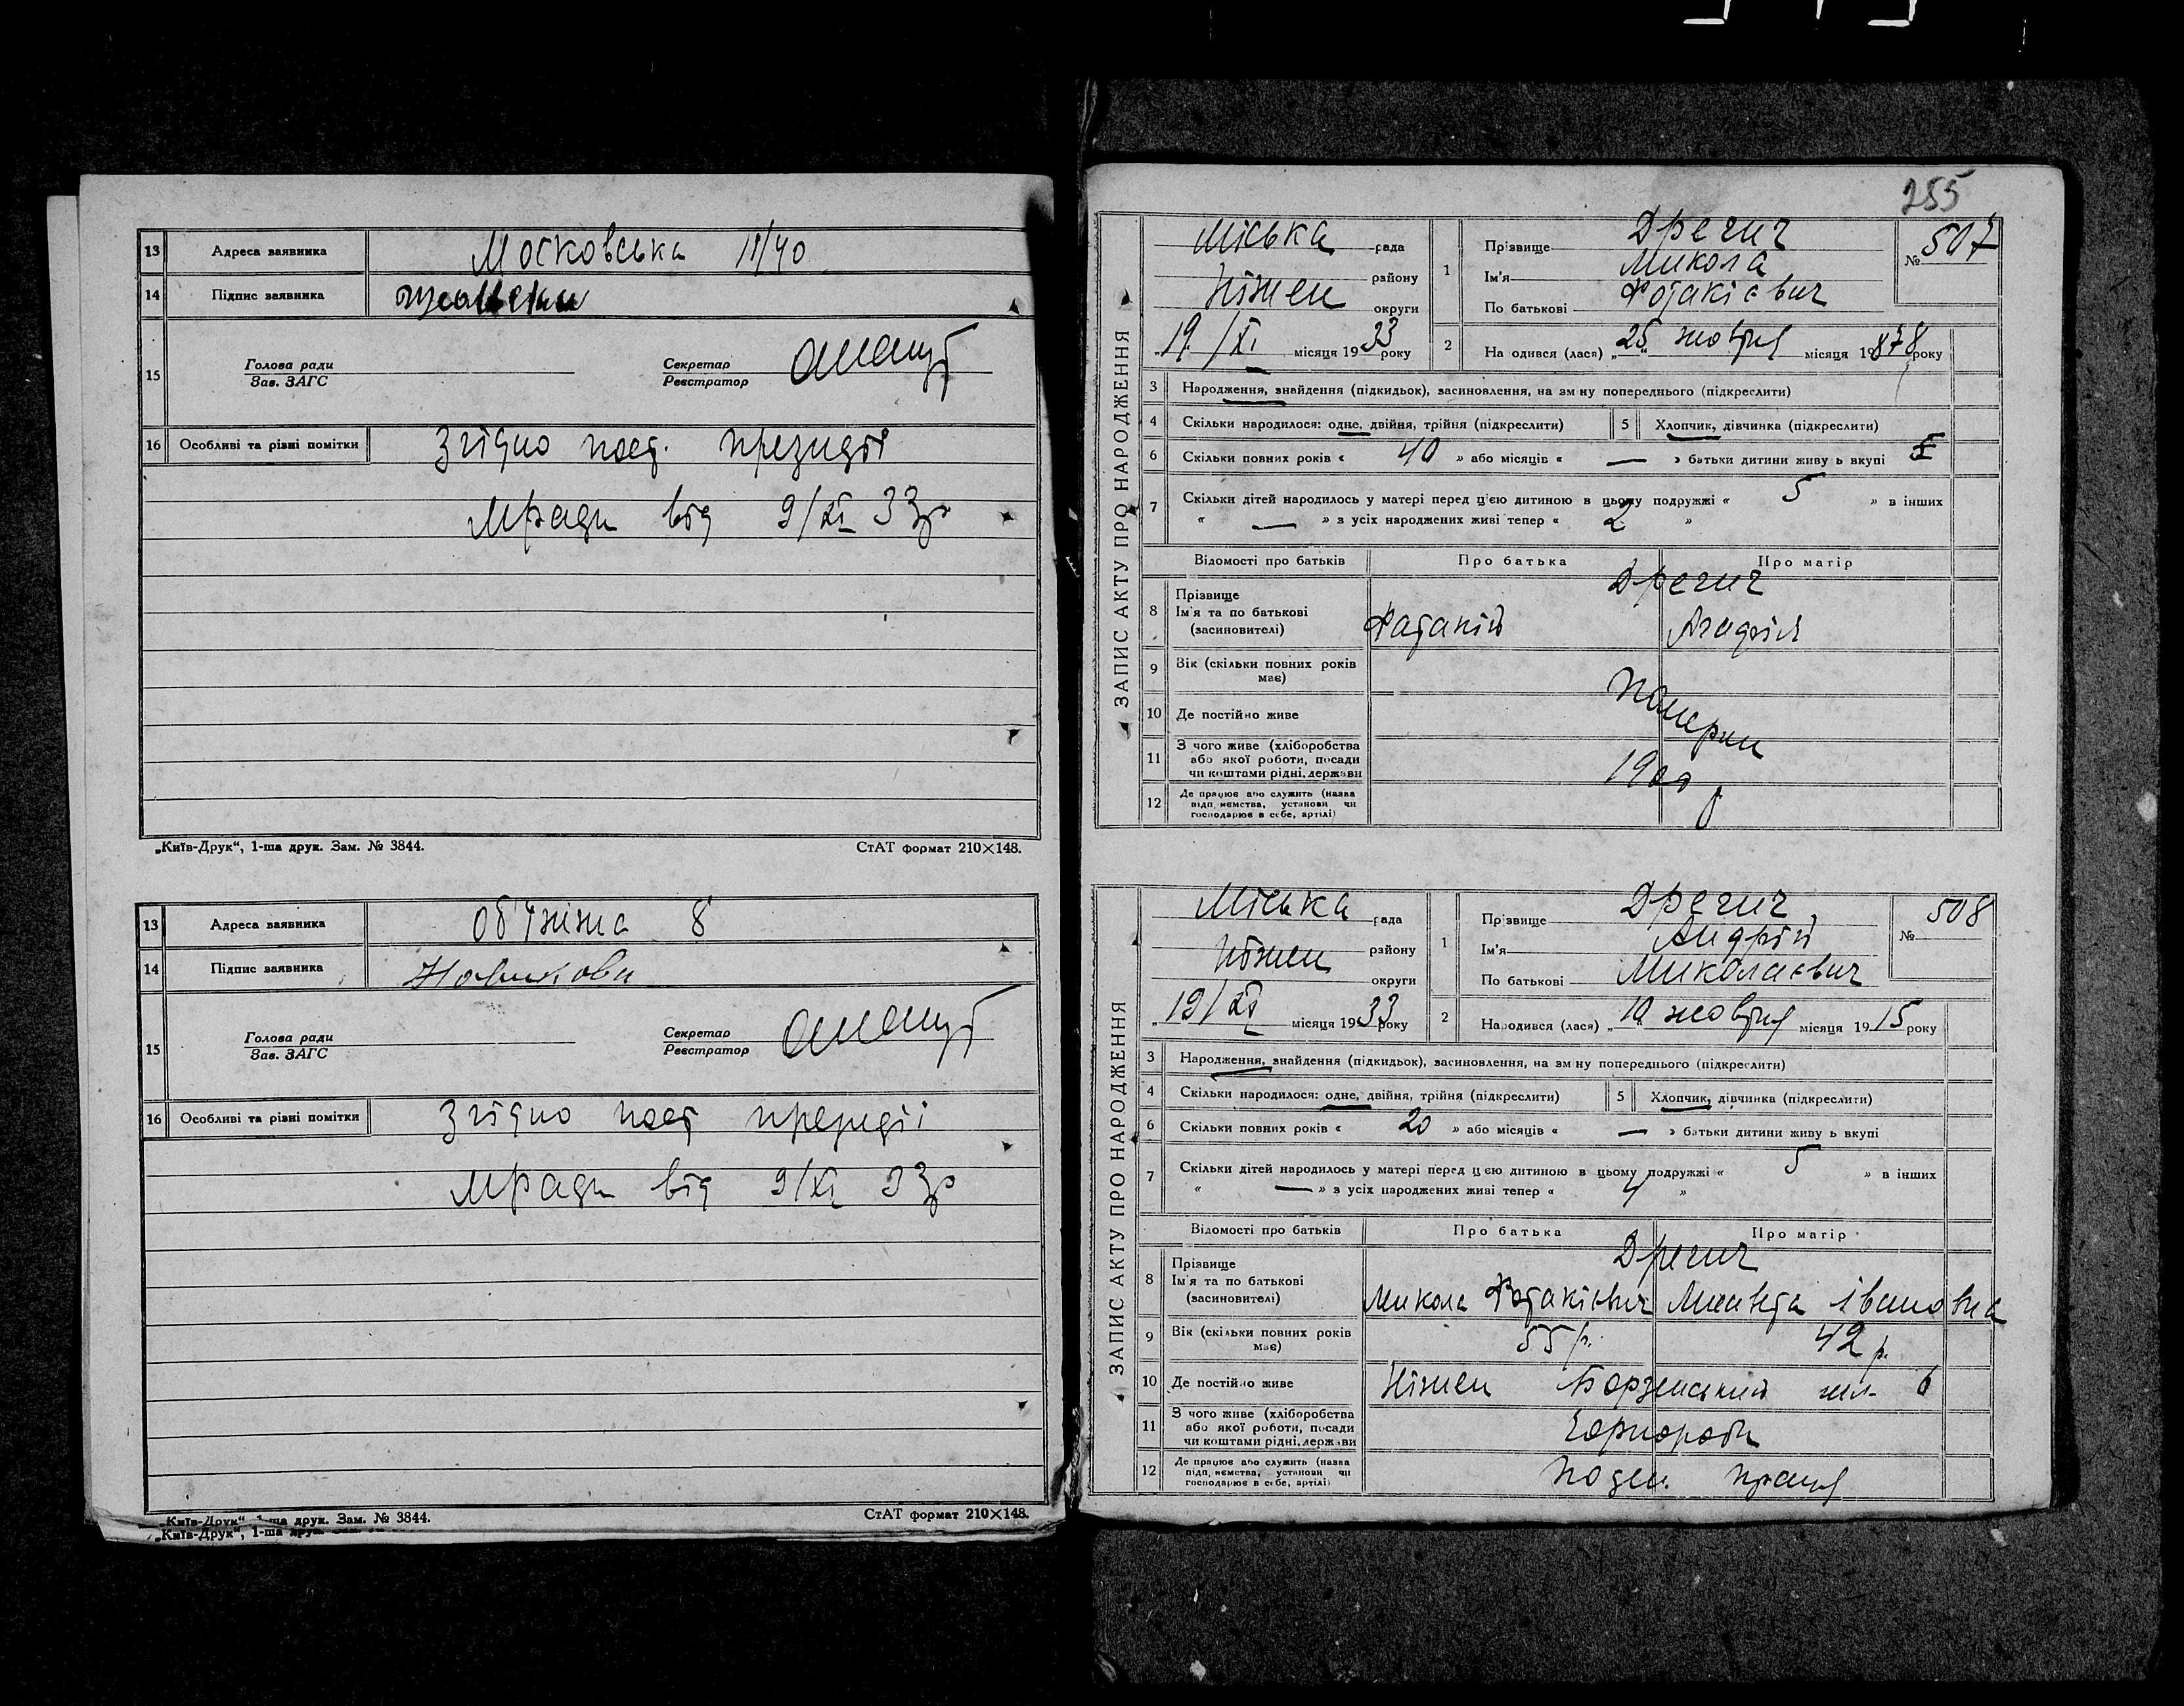 13 Адреса заявника Московська 11/40
14 Підпис заявника
15 Голова ради
Зав. ЗАГС
Секретар
Реєстратор
16 Особливі та різні помітки Згідно пост. президії
мради від 9/XI 33р
„Київ-Друк“, 1-ша друк. Зам. № 3844. СтАТ формат 210×148.
13 Адреса заявника Об'їжжа 8
14 Підпис заявника Новикова
15 Голова ради
Зав. ЗАГС
Секретар
Реєстратор
16 Особливі та різні помітки Згідно пост президії
мради від 9/XI 33р
„Київ-Друк“, 1-ша друк. Зам. № 3844. СтАТ формат 210×148.
„Київ-Друк“, 1-ша друк.
255
ЗАПИС АКТУ ПРО НАРОДЖЕННЯ
Міська рада
району
Ніжен округи
„19/XI місяця 1933 року
1 Прізвище Дрегич
Ім'я Микола
По батькові Фотакієвич
№ 507
2 Народився (лася) „25“ жовтня місяця 1878 року
3 Народження, знайдення (підкидьок), засиновлення, на зміну попереднього (підкреслити)
4 Скільки народилося: одне, двійня, трійня (підкреслити) 5 Хлопчик, дівчинка (підкреслити)
6 Скільки повних років « 40 » або місяців « — » батьки дитини живуть вкупі
7 Скільки дітей народилось у матері перед цією дитиною в цьому подружжі « 5 » в інших
« — » з усіх народжених живі тепер « 2 »
Відомості про батьків Про батька Про матір
Дрегич
8 Прізвище
Ім'я та по батькові
(засиновителі)
Фатакій Агафія
9 Вік (скільки повних років
має)
Померли
10 Де постійно живе
11 З чого живе (хліборобства
або якої роботи, посади
чи коштами рідні, держави
12 Де працює або служить (назва
підприємства, установи чи
господарює в себе, артілі)
ЗАПИС АКТУ ПРО НАРОДЖЕННЯ
Міська рада
Ніжен району
округи
„19/XI місяця 1933 року
1 Прізвище Дрегич,
Ім'я Андрій
По батькові Миколаєвич
№ 508
2 Народився (лася) „10 жовтня місяця 1915 року
3 Народження, знайдення (підкидьок), засиновлення, на зміну попереднього (підкреслити)
4 Скільки народилося: одне, двійня, трійня (підкреслити) 5 Хлопчик, дівчинка (підкреслити)
6 Скільки повних років « 20 » або місяців « — » батьки дитини живуть вкупі
7 Скільки дітей народилось у матері перед цією дитиною в цьому подружжі « 5 » в інших
« — » з усіх народжених живі тепер « 4 »
Відомості про батьків Про батька Про матір
Дрегич
8 Прізвище
Ім'я та по батькові
(засиновителі)
Микола Фотакієвич Івановна
9 Вік (скільки повних років
має)
55 р. 42 р.
10 Де постійно живе Ніжен Борзенський шл. 6
11 З чого живе (хліборобства
або якої роботи, посади
чи коштами рідні, держави
Чорнороб
12 Де працює або служить (назва
підприємства, установи чи
господарює в себе, артілі)
Поден. праця